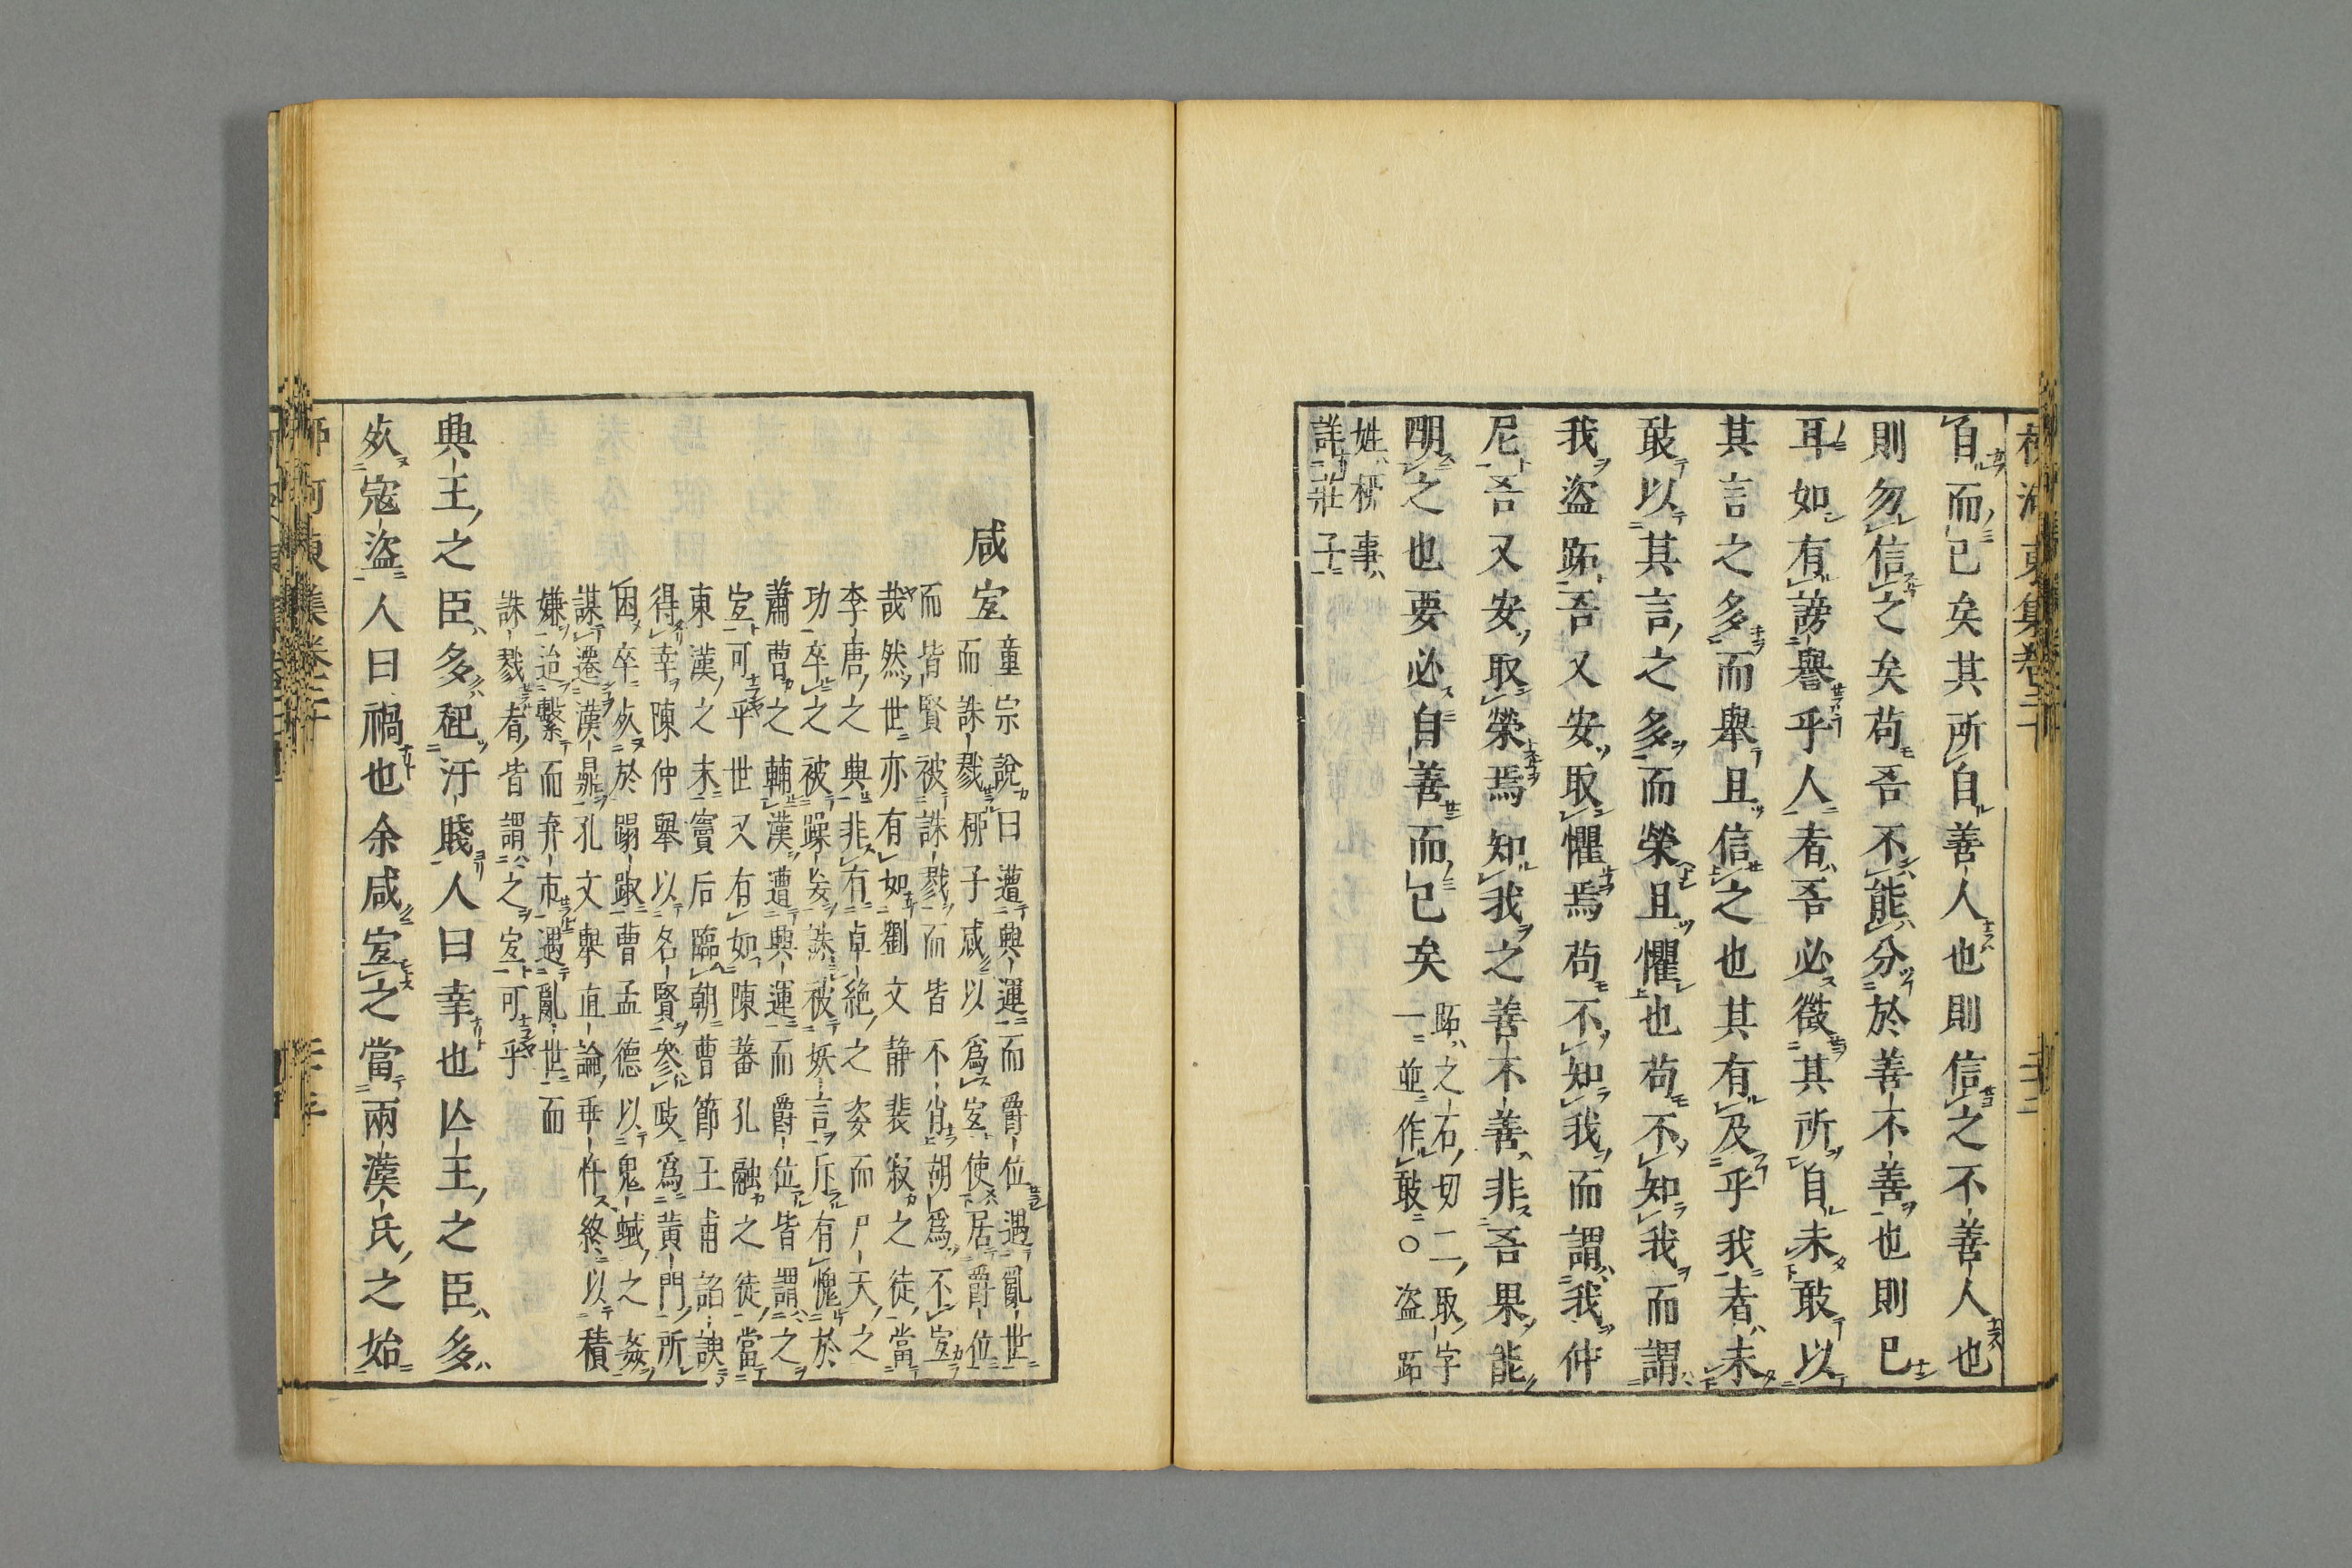 自而已矣其所自善人也則信之不善人也
則勿信之矣苟吾不能分於善不善也則已
耳如有謗譽乎人者吾必徵其所自未敢以
其言之多而舉且信之也其有及乎我者未
敢以其言之多而榮且懼也苟不知我而謂
我盜跖吾又安取懼焉苟不知我而謂我仲
尼吾又安取榮焉知我之善不善非吾果能
明之也要必自善而已矣
跖之石切二取字
一並作敢〇盜跖
姓柳事
詳莊子
咸宜
童宗說曰遭興運而爵位遇亂世
而誅戮柳子咸以為宜使居爵位
而皆賢被誅戮而皆不肖胡為不宜
哉然世亦有如劉文静裴寂之徒當
李唐之興非有卓絶之姿而尸天之
功卒之被躁妄誅被妖言斥有愧於
蕭曹之輔漢遭興運而爵位皆謂之
宜可乎世又有如陳蕃孔融之徒當
東漢之末竇后臨朝曹節王甫諂諛
得幸陳仲舉以名賢參政為黃門所
困卒死於蹋踧曹孟德以鬼蜮之姦
謀遷漢鼎孔文舉直論乖忤終以積
嫌迨繫而弃市遇亂世而
誅戮者皆謂之宜可乎
興王之臣多起汙賤人曰幸也亾王之臣多
死寇盜人曰禍也余咸宜之當兩漢氏之始